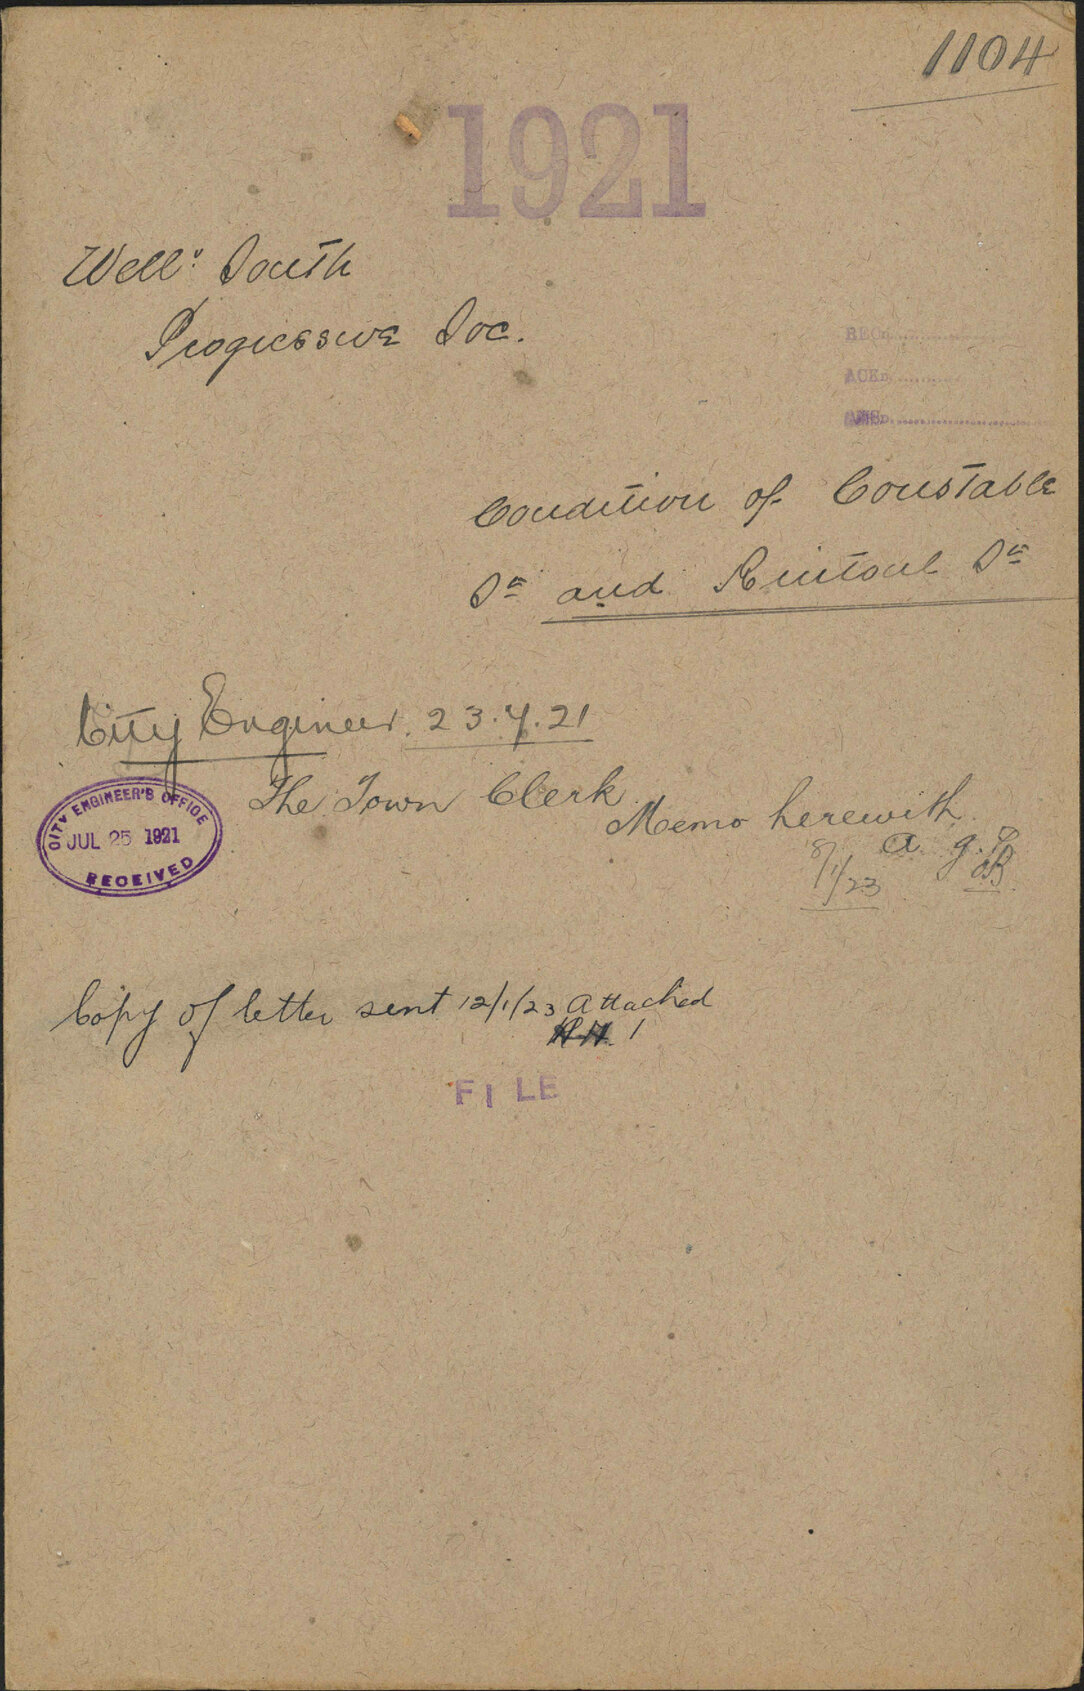 1104
1921
Well: South
Progressive Soc.
RECD..............
ACKD..............
Condition of Constable
St and Rintoul St
City Engineer. 23.7.21
CITY ENGINEER'S OFFICE
JUL 25 1921
RECEIVED
The Town Clerk
Memo herewith
8/1/23
Copy of letter sent 12/1/23 attached
FILE